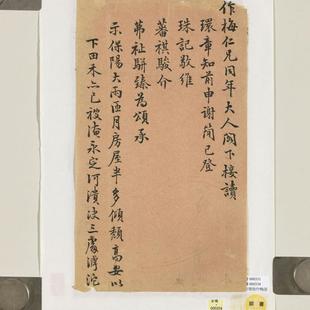 作梅仁兄同年大人閣下接讀
環章知前申謝簡已登
珠記敬維
蕃祺駿介
茀祉駢臻為頌承
示保陽大雨匝月房屋半多傾頹高安以
下田禾亦已被淹永定河潰決三處滹沱